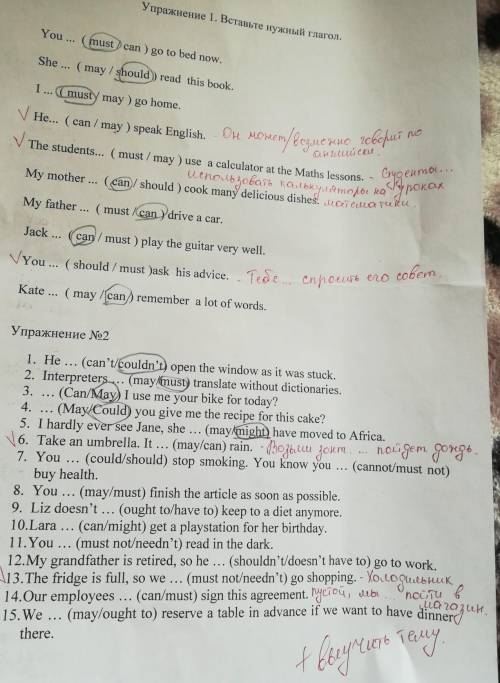 Упражнение 1. Вставьте нужный глагол.
You ... ( must / can ) go to bed now.
She ... ( may / should ) read this book.
I ... ( must / may ) go home.
√ He... ( can / may ) speak English. - Он может/возможно говорит по английски.
√ The students... ( must / may ) use a calculator at the Maths lessons. - Студенты...
использовать калькуляторы на уроках математики.
My mother ... ( can / should ) cook many delicious dishes.
My father ... ( must / can ) drive a car.
Jack ... ( can / must ) play the guitar very well.
√ You ... ( should / must )ask his advice. - Тебе ... спросить его совет.
Kate ... ( may / can ) remember a lot of words.
Упражнение №2
1. He … (can’t/couldn’t) open the window as it was stuck.
2. Interpreters … (may/must) translate without dictionaries.
3. … (Can/May) I use me your bike for today?
4. … (May/Could) you give me the recipe for this cake?
5. I hardly ever see Jane, she … (may/might) have moved to Africa.
√ 6. Take an umbrella. It … (may/can) rain. - Возьми зонт. ... пойдет дождь.
7. You … (could/should) stop smoking. You know you … (cannot/must not)
buy health.
8. You … (may/must) finish the article as soon as possible.
9. Liz doesn’t … (ought to/have to) keep to a diet anymore.
10.Lara … (can/might) get a playstation for her birthday.
11.You … (must not/needn’t) read in the dark.
12.My grandfather is retired, so he … (shouldn’t/doesn’t have to) go to work.
√ 13.The fridge is full, so we … (must not/needn’t) go shopping. - Холодильник
пустой, мы ... пойти в магазин.
14.Our employees … (can/must) sign this agreement.
15.We … (may/ought to) reserve a table in advance if we want to have dinner
there.
+ выучить тему.